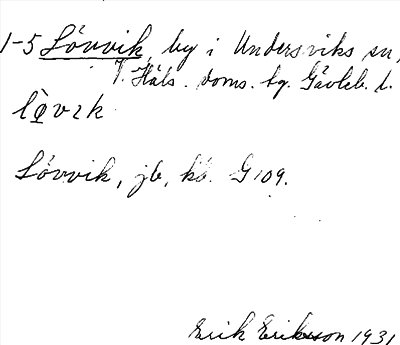 1-5 Lövvik, by i Undersviks sn,
V. Häls. doms. hg. Gävleb. l.
lø̀vık
Lövvik, jb, kb. G 109.
Erik Eriksson 1931